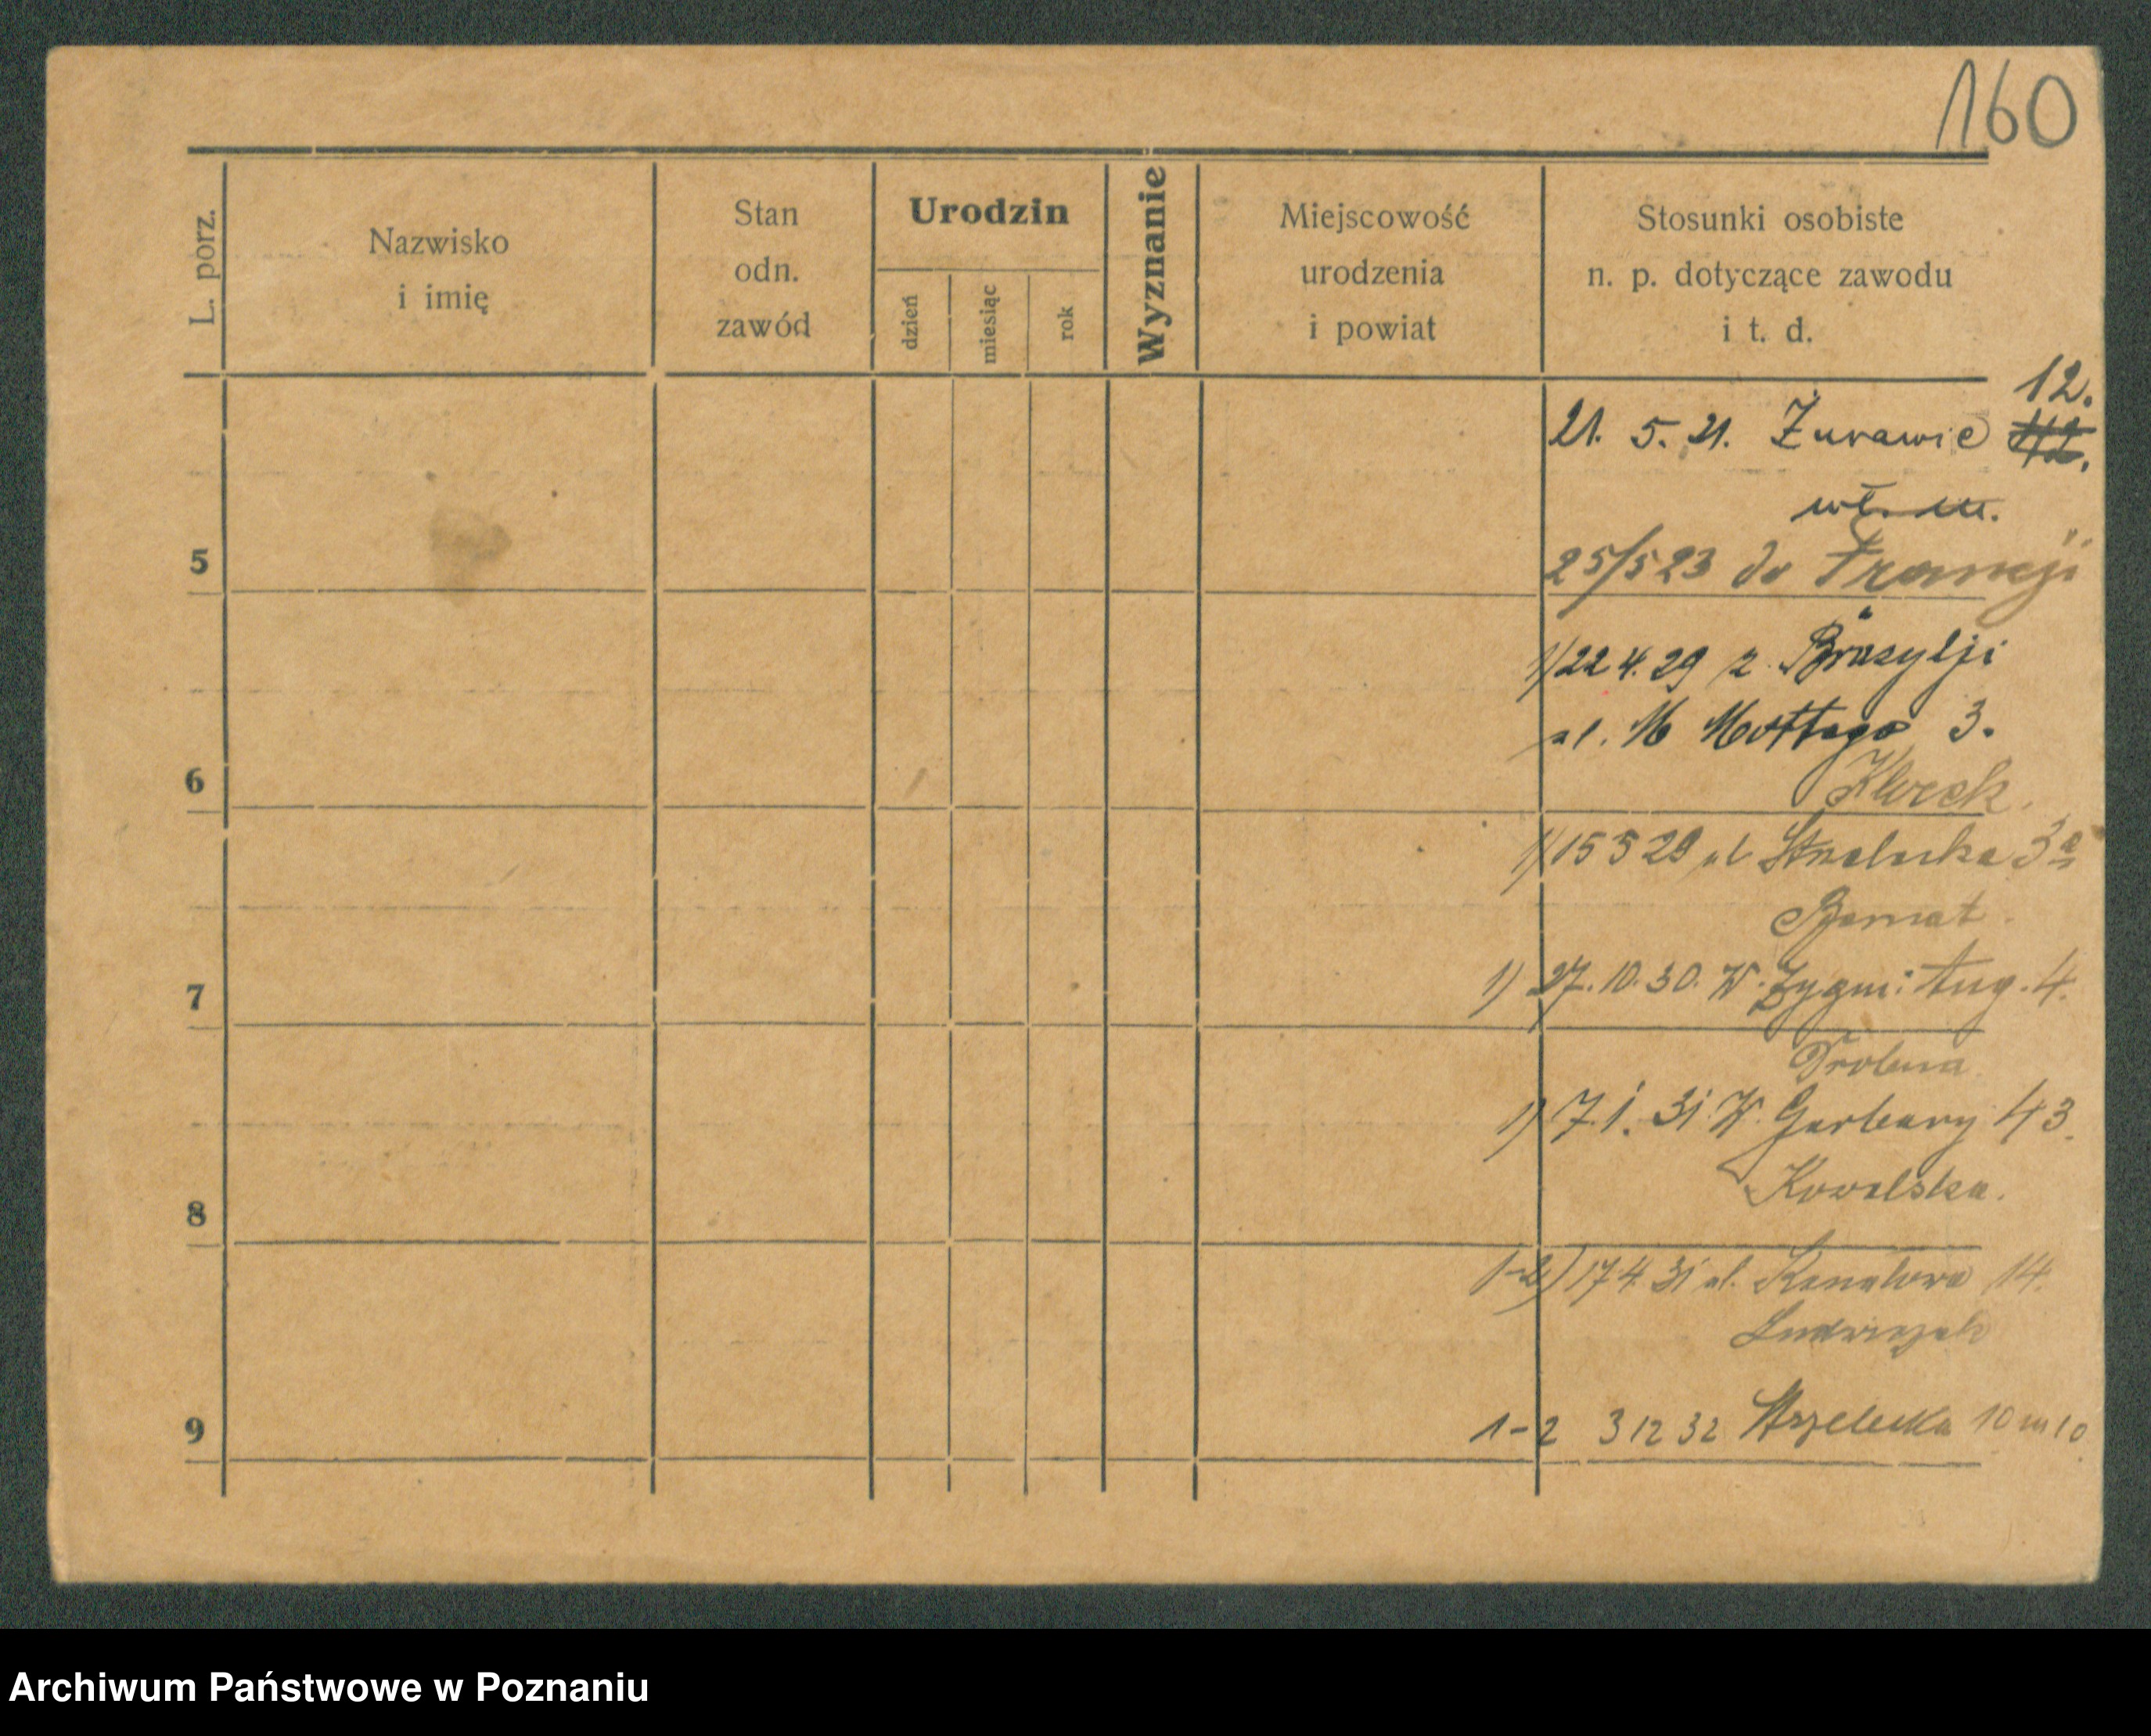 160
L. porz.
Nazwisko
i imię
Stan
odn.
zawód
Urodzin
dzień
miesiąc
rok
Wyznanie
Miejscowość
urodzenia
i powiat
Stosunki osobiste
n. p. dotyczące zawodu
i t. d.
12.
21. 5. 21. Żurawie
wł. m.
5
25/5 23 do Francji
1) 22 4. 29 z Brazylji
ul. M Mottego 3.
6
1) 15 5 29 ul Strzelecka 3a
7
1) 27. 10. 30. W. Zygm: Aug. 4.
1) 7. 1. 31 W. Garbary 43.
Kowalska.
8
1-2) 17 4 31 ul. Kanałowa 14.
Ludwiczak
9
1-2 3 12 32 Strzelecka 10 m 10
Archiwum Państwowe w Poznaniu